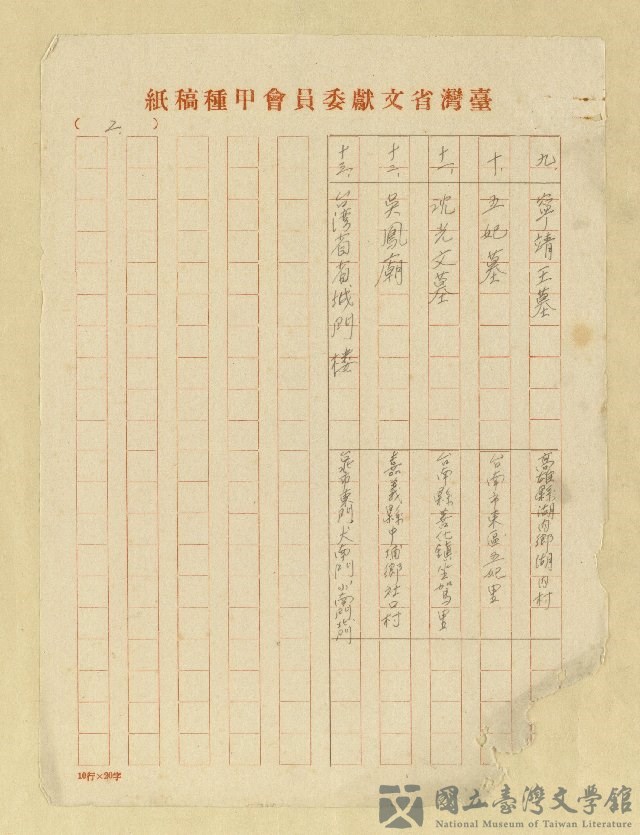 紙稿種甲會員委獻文省灣臺
( 2. )
九、寧靖王墓 高雄縣湖內鄉湖內村
十、五妃墓 台南市東區五妃里
十一、沈光文墓 台南縣善化鎮坐駕里
十二、吳鳳廟 嘉義縣中埔鄉社口村
十三、台湾省省城門楼 東門大南門小南門北門
10行×20字
國立臺灣文學館
National Museum of Taiwan Literature